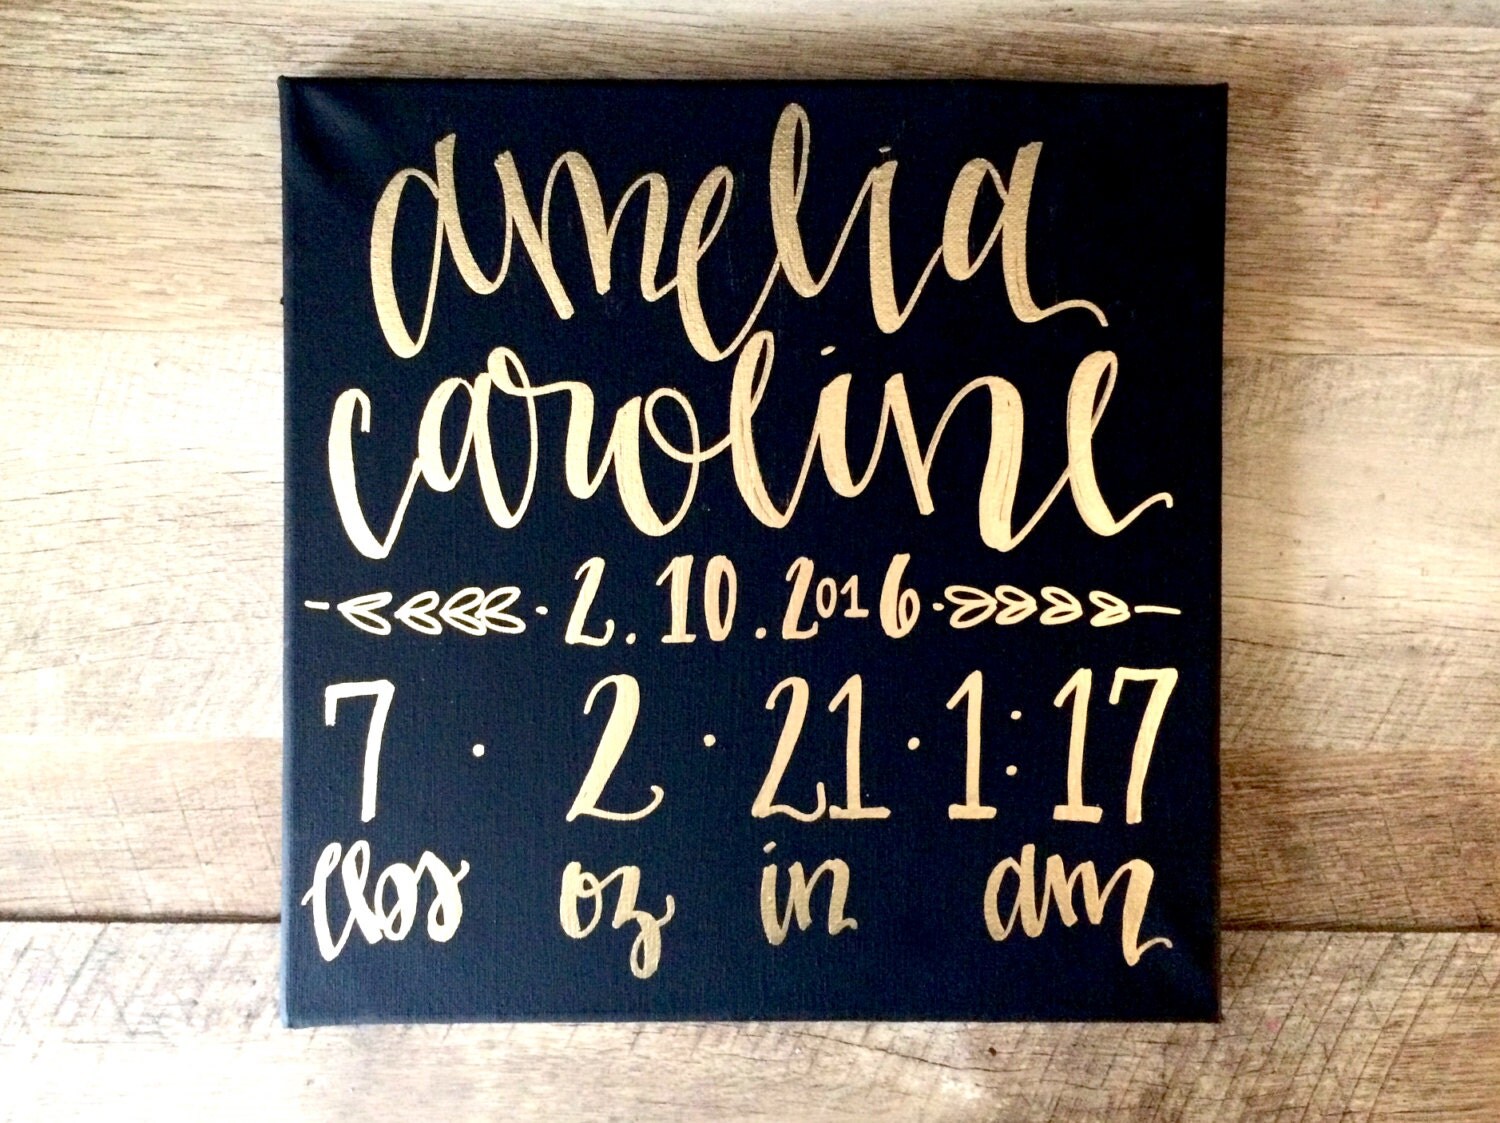 amelia
caroline
2.10.2016
7 · 2 · 21 · 1:17
lbs oz in am